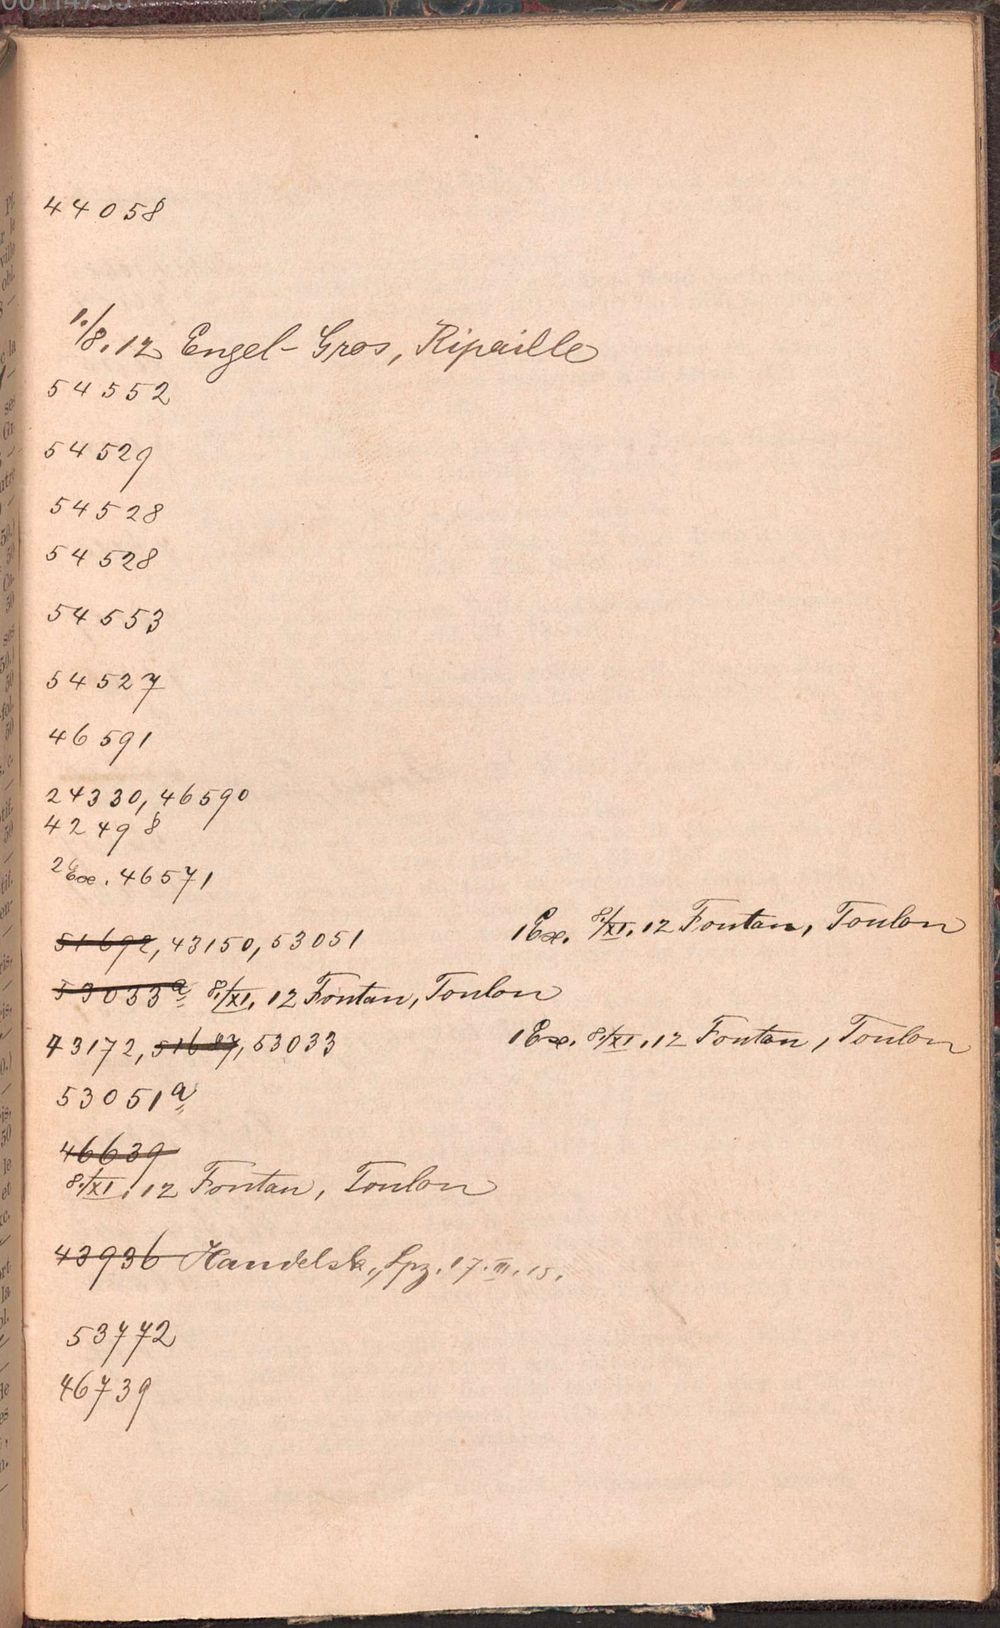 44058
1./8.12 Engel-Gros, Ripaille
54552
54529
54528
54528
54553
54527
46591
24330, 46590
42498
2 Ex. 46571
51692, 43150, 53051 1 Ex. 8./XI.12 Fontan, Toulon
53033a 8./XI.12 Fontan, Toulon
43172, 51687, 53033 1 Ex. 8./XI.12 Fontan, Toulon
53051a
46639
8./XI.12 Fontan, Toulon
43936 Handelsk., Lpz. 17.III.15.
53772
46739